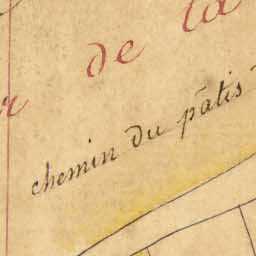 r de la
chemin du pâtis